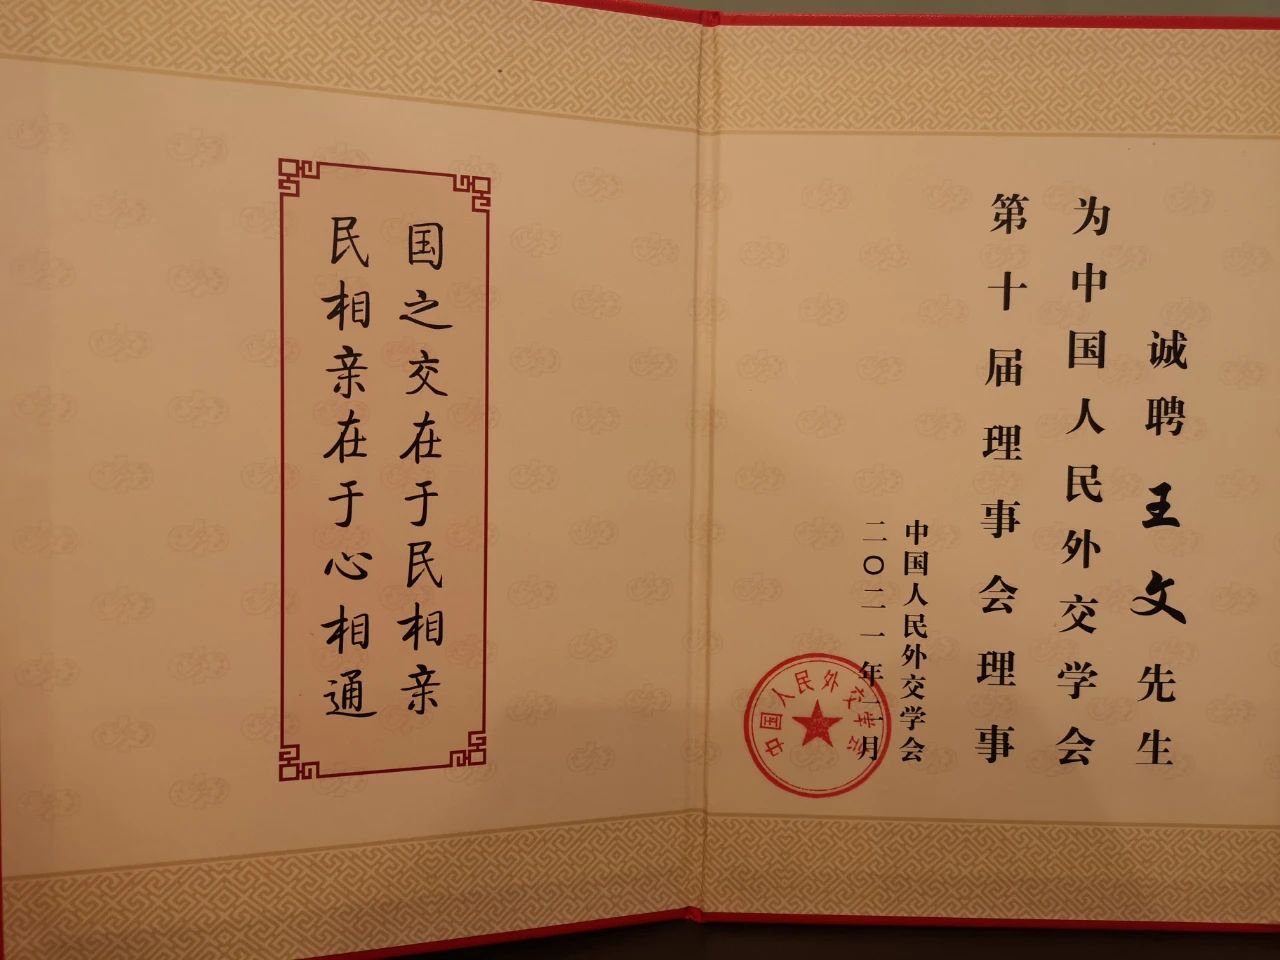 诚聘王文先生
为中国人民外交学会
第十届理事会理事
中国人民外交学会
二〇二一年二月
中国人民外交学会
国之交在于民相亲
民相亲在于心相通